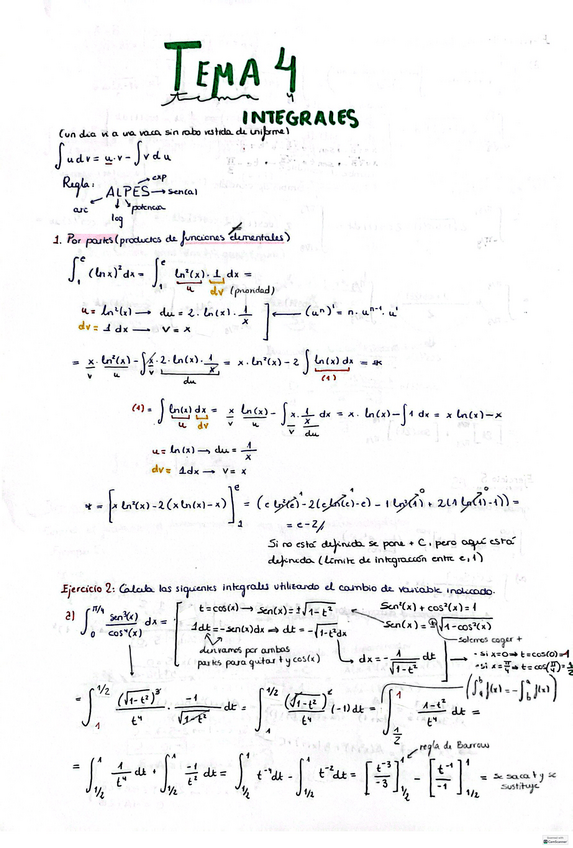 TEMA 4
tema 4
INTEGRALES
(un dia vi a una vaca sin rabo vestida de uniforme)
∫u dv = u·v - ∫v du
Regla: ALPES → exp → sen cal
arc log potencia
1. Por partes (productos de funciones elementales)
∫₁^e (ln x)² dx = ∫₁^e ln²(x) · 1 dx =
u dv (prioridad)
u = ln²(x) → du = 2 · ln(x) · 1/x ] ← (uⁿ)' = n · uⁿ⁻¹ · u'
dv = 1 dx → v = x
= x · ln²(x) - ∫ x · 2 · ln(x) · 1/x = x · ln²(x) - 2 ∫ ln(x) dx = *
v u v du (1)
(1) = ∫ ln(x) dx = x ln(x) - ∫ x · 1/x dx = x · ln(x) - ∫ 1 dx = x ln(x) - x
u dv v u v du
u = ln(x) → du = 1/x
dv = 1dx → v = x
* = [x ln²(x) - 2(x ln(x) - x)]₁^e = (e ln²(e) - 2(e ln(e) - e) - 1 ln²(1) + 2(1 ln(1) - 1)) =
= e - 2
Si no está definida se pone + C, pero aquí está
definida (límite de integración entre e, 1)
Ejercicio 2: Calcula las siguientes integrales utilizando el cambio de variable indicado.
a) ∫₀^π/4 sen³(x)/cos⁴(x) dx =
t = cos(x) → sen(x) = ±√(1-t²)
sen²(x) + cos²(x) = 1
sen(x) = ±√(1-cos²(x))
1dt = -sen(x)dx ⇒ dt = -√(1-t²) dx
solemos coger +
derivamos por ambas
partes para quitar t y cos(x)
dx = - 1/√(1-t²) dt
- si x=0 ⇒ t = cos(0) = 1
- si x = π/4 ⇒ t = cos(π/4) =
(∫ₐᵇ f(x) = -∫ᵇₐ f(x))
= ∫₁^1/2 (√(1-t²))³/t⁴ · -1/√(1-t²) dt = ∫₁^1/2 (√(1-t²))²/t⁴ (-1) dt = ∫₁/₂^1 1-t²/t⁴ dt =
regla de Barrow
= ∫₁/₂^1 1/t⁴ dt + ∫₁/₂^1 -1/t² dt = ∫₁/₂^1 t⁻⁴ dt - ∫₁/₂^1 t⁻² dt = [t⁻³/-3]₁/₂^1 - [t⁻¹/-1]₁/₂^1 = se saca t y se
sustituye
CamScanner